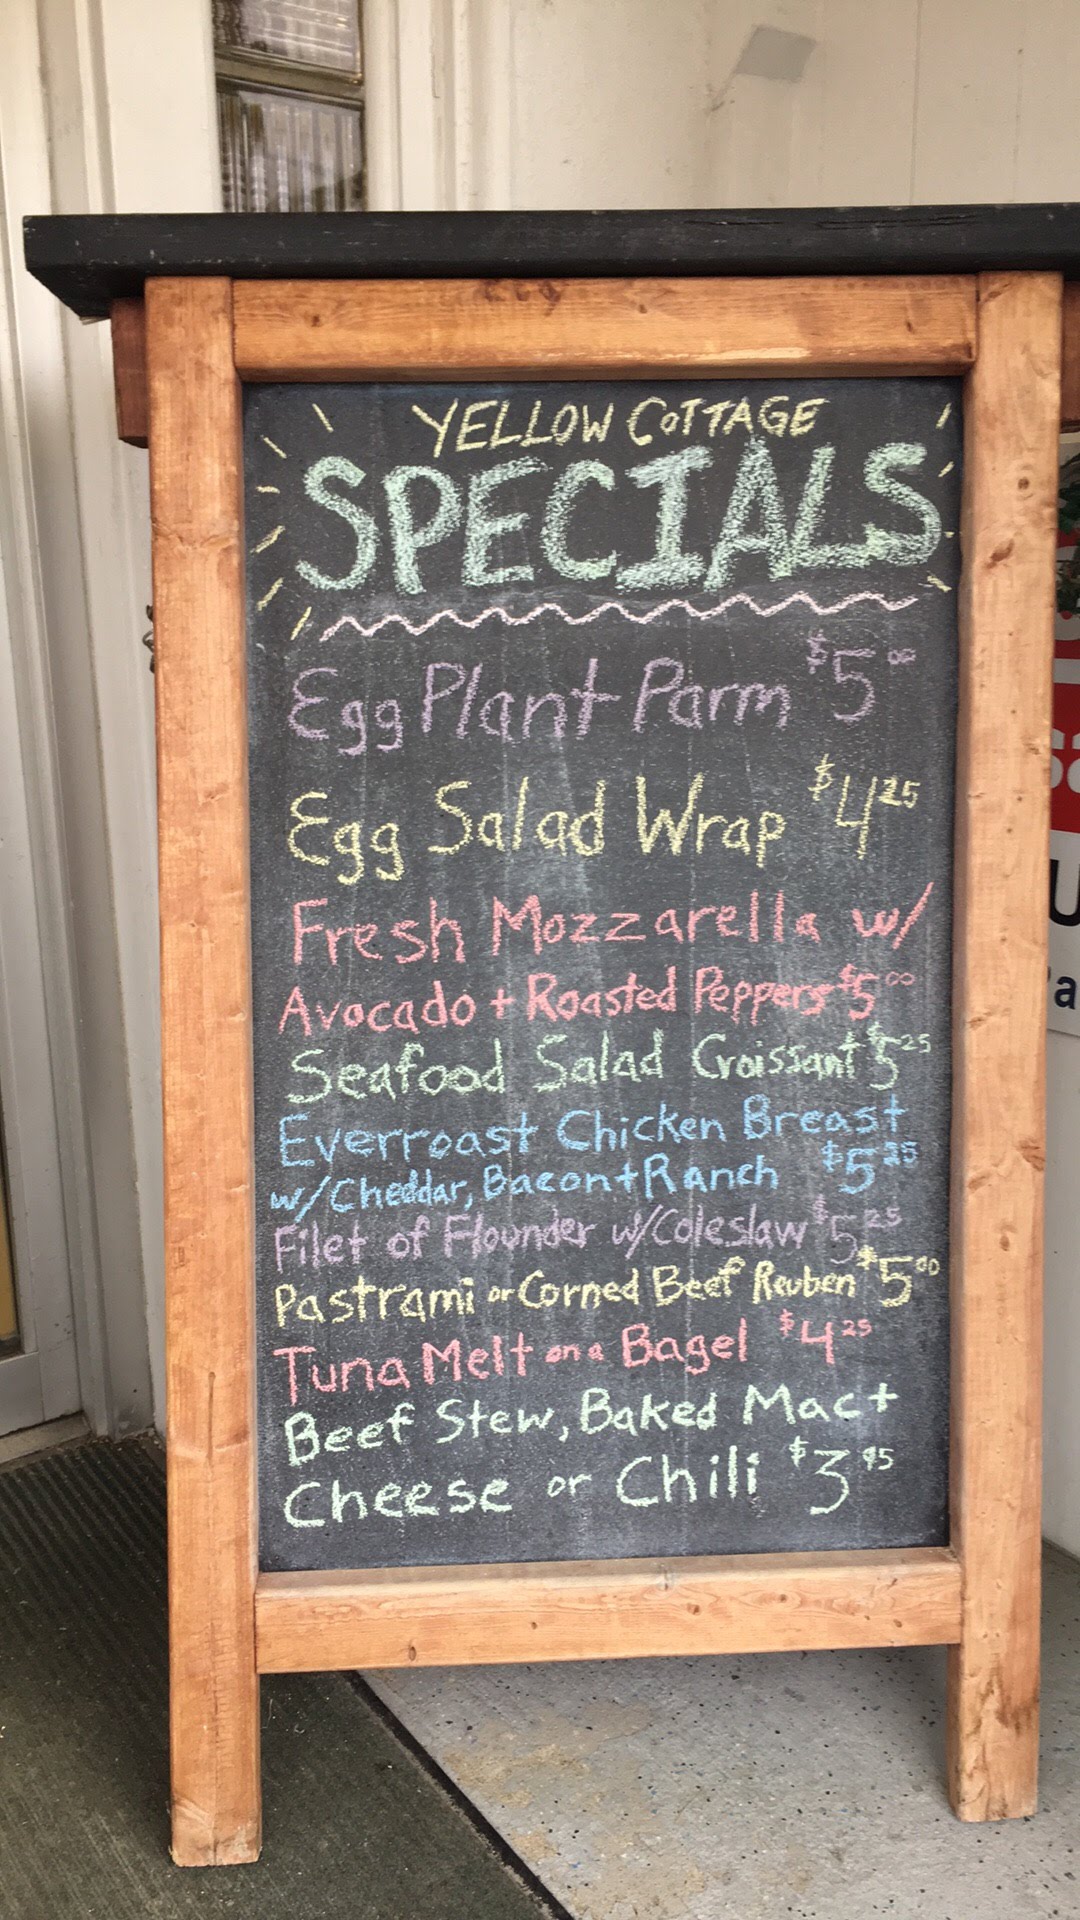 YELLOW COTTAGE
SPECIALS
Egg Plant Parm $5.00
Egg Salad Wrap $4.25
Fresh Mozzarella w/
Avocado + Roasted Peppers $5.00
Seafood Salad Croissant $5.25
Everroast Chicken Breast
w/Cheddar, Bacon + Ranch $5.25
Filet of Flounder w/Coleslaw $5.25
Pastrami or Corned Beef Reuben $5.00
Tuna Melt on a Bagel $4.25
Beef Stew, Baked Mac +
Cheese or Chili $3.95